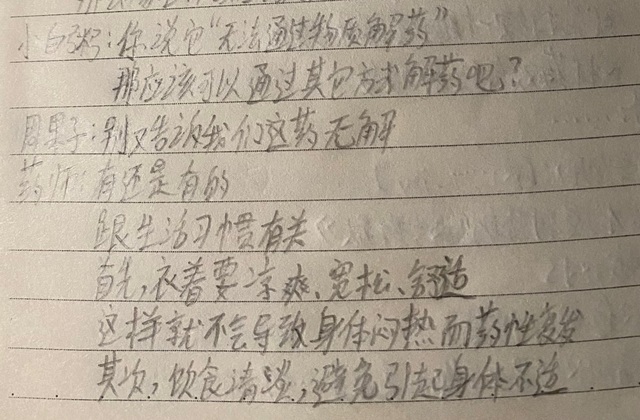 小白粥:你说它“无法通过物质解药”
那应该可以通过其它方式解药吧?
周果子:别又告诉我们这药无解
药师:有还是有的
跟生活习惯有关
首先,衣着要凉爽、宽松、舒适
这样就不会导致身体闷热而药性复发
其次,饮食清淡,避免引起身体不适